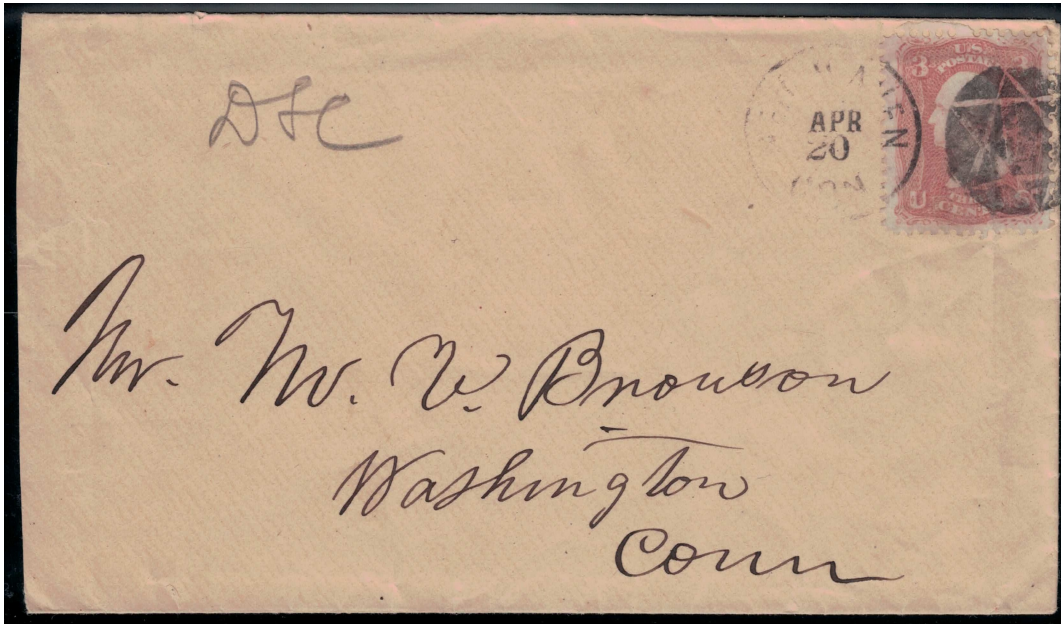 DSC
NEW HAVEN
APR
20
CON
3 U.S. 3
POSTAGE
U S
CENTS
Mr. W. V. Bronson
Washington
Conn